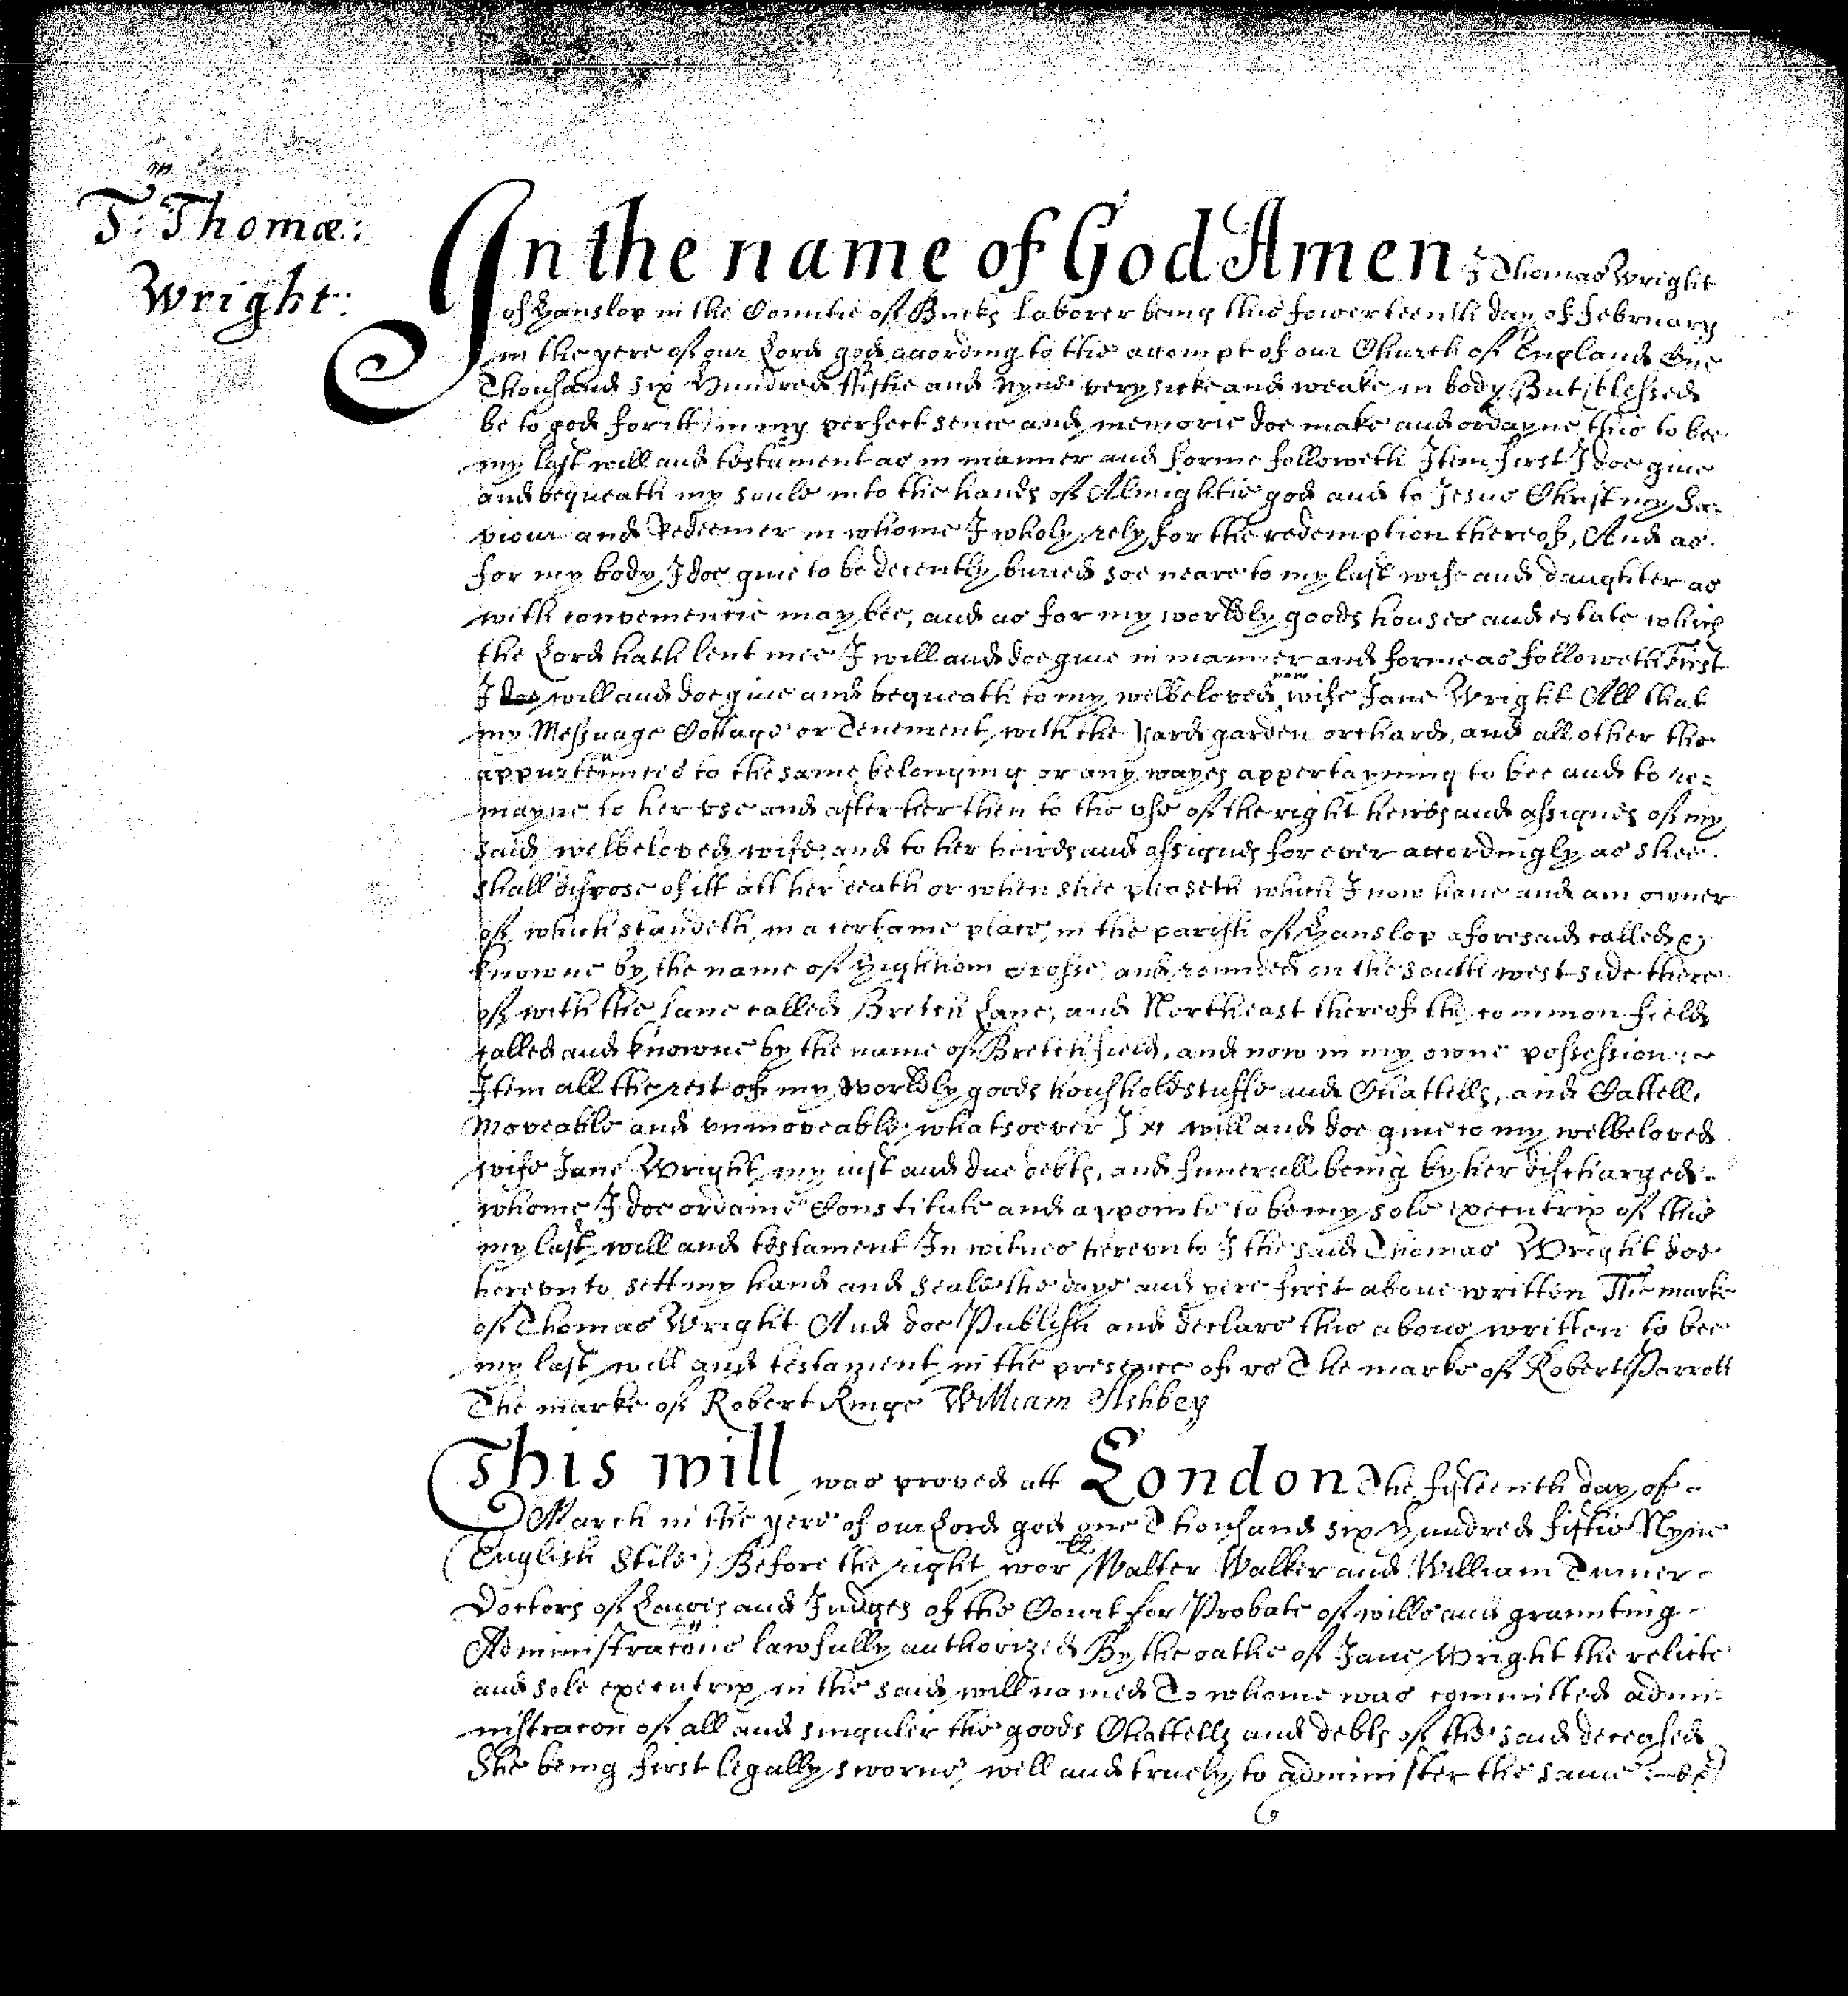 T: Thomæ:
Wright:
In the name of God Amen I Thomas Wright
of Hanslop in the Countie of Bucks Laborer being this fowerteenth day of February
in the yere of our Lord god according to the accompt of our Church of England One
Thousand six Hundred ffiftie and Nyne very sicke and weake in body But (blessed
be to god for itt) in my perfect sence and memorie doe make and ordayne this to bee
my last will and testament as in manner and forme followeth Item first I doe giue
and bequeath my soule into the hands of Almightie god and to Jesus Christ my Sa-
viour and Redeemer in whome I wholy rely for the redemption thereof, And as
for my body I doe giue to be decently buried soe neare to my last wife and daughter as
with convenientie may bee, and as for my worldly goods houses and estate which
the Lord hath lent mee I will and doe giue in manner and forme as followeth First
I doe will and doe giue and bequeath to my welbeloved now wife Jane Wright All that
my Messuage Cottage or Tenement with the Yard garden orchard, and all other the
appurtenncs to the same belonging or any wayes appertayning to bee and to re=
mayne to her vse and after her then to the vse of the right heires and assignes of my
said welbeloved wife, and to her heires and assignes for ever accordingly as shee
shall dispose of itt att her death or when shee pleaseth which I now haue and am owner
of which standeth in a certaine place in the parish of Hanslop aforesaid called &
knowne by the name of crosse, and rounded on the south west side there
of with the lane called Bretch Lane, and Northeast thereof the common field
called and knowne by the name of Bretch field, and now in my owne possession :~
Item all the rest of my worldly goods houshold stuffe and Chattells, and Cattell,
Moveable and vnmoveable whatsoever I will and doe giue to my welbeloved
wife Jane Wright my iust and due debts, and funerall being by her discharged
whome I doe ordaine Constitute and appointe to be my sole executrix of this
my last will and testament In witnes herevnto I the said Thomas Wright doe
herevnto sett my hand and seale the daye and yere first aboue written The marke
of Thomas Wright And doe Publish and declare this aboue written to bee
my last will and testament in the presence of vs The marke of Robert Parrott
The marke of Robert Kinge William Ashbey
This will was proved att London the fifteenth day of
March in the yere of our Lord god one Thousand six Hundred fiftie Nyne
(English Stile) Before the right worll Walter Walker and William Turner
Doctors of Lawes and Judges of the Court for Probate of wills and graunting
Administracons lawfully authorized By the oathe of Jane Wright the relicte
and sole executrix in the said will named To whome was committed admi-
nistracon of all and singuler the goods Chattells and debts of the said deceased
She being first legally sworne, well and truely to administer the same